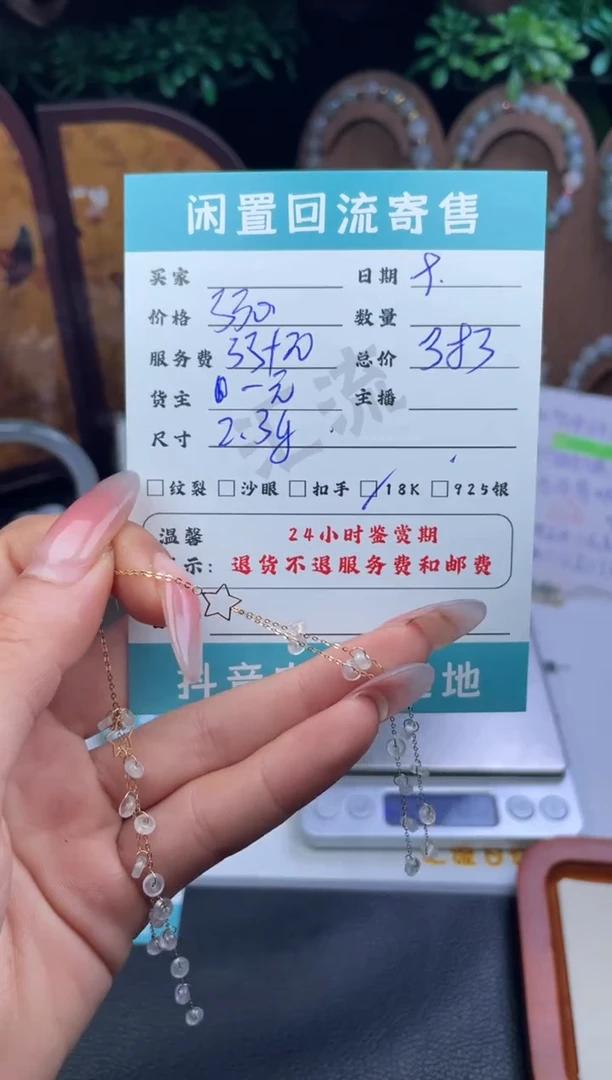 闲置回流寄售
买家 日期
价格 330 数量
服务费 33+20 总价 383
货主 主播
尺寸 2.3g
流
纹裂 沙眼 扣手 18K 925银
温馨 24小时鉴赏期
示: 退货不退服务费和邮费
抖音 地